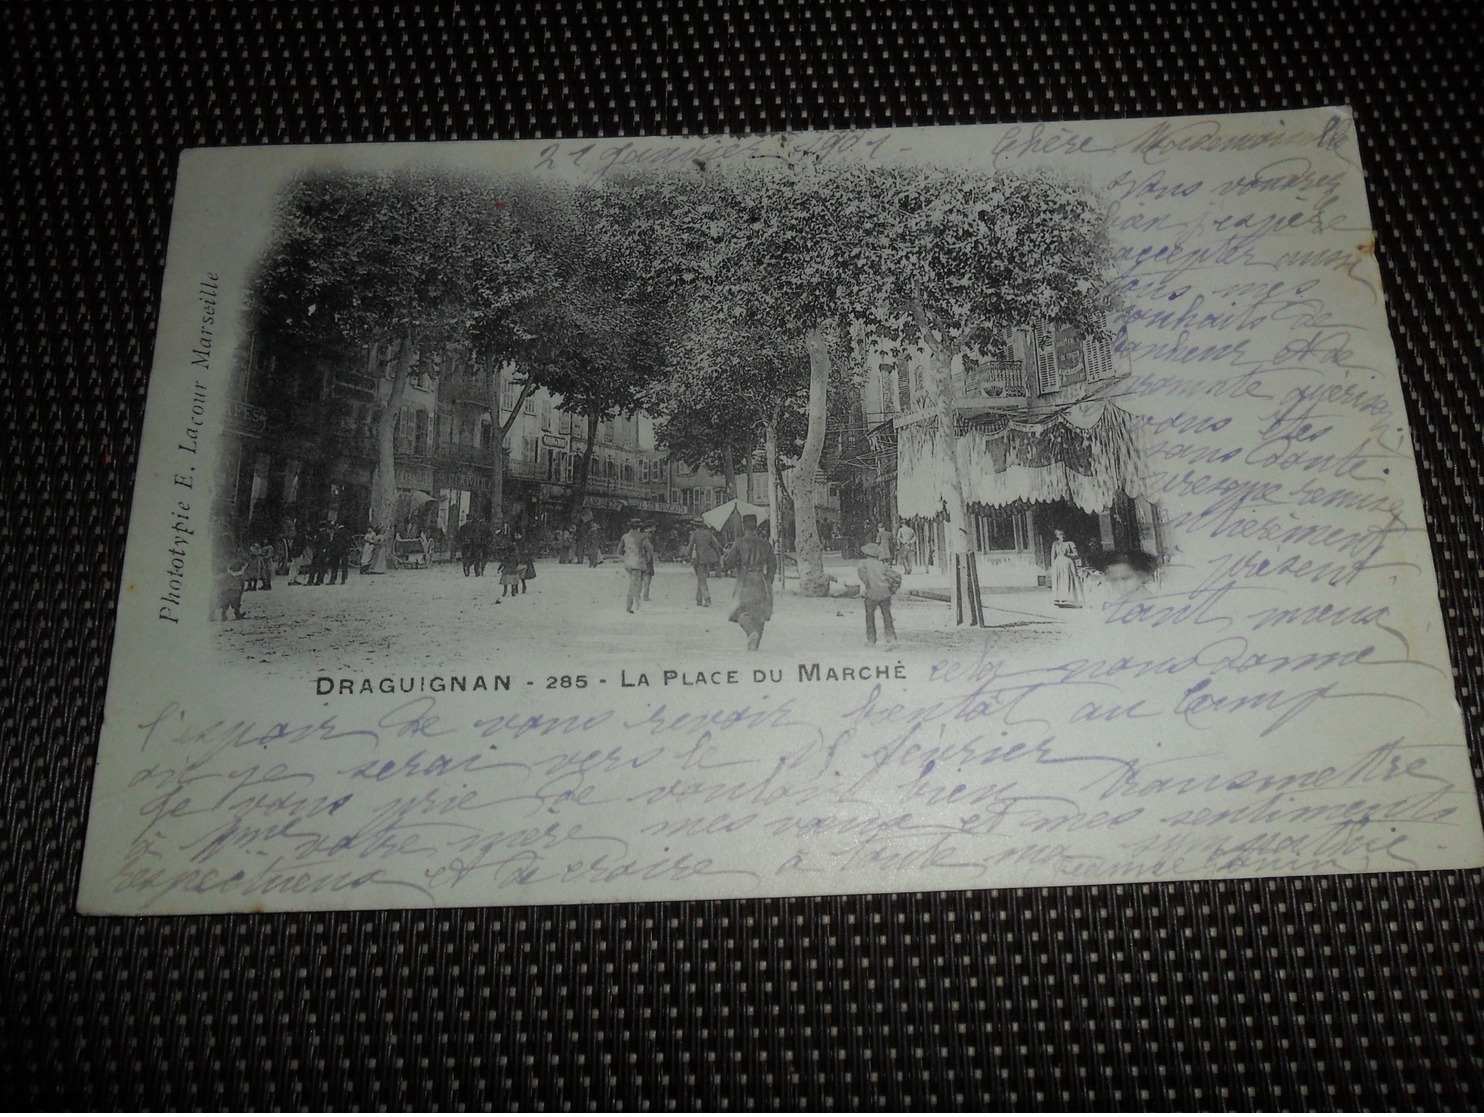 21 Janvier 1901 - Chère Mademoiselle
Vous voudrez
bien j'espère
accepter aussi
tous mes
souhaits de
bonheur et de
prompte guérison
vous êtes
sans doute
presque remise
entièrement
présent
tant mieux
cela nous donne
l'espoir de vous revoir bientôt au Camp
où je serai vers le 15 février
Je vous prie de vouloir bien transmettre
à Mme votre mère mes vœux et mes sentiments
respectueux et de croire à toute ma sympathie
Phototypie E. Lacour Marseille
DRAGUIGNAN - 285 - LA PLACE DU MARCHÉ